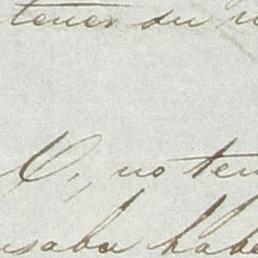 tener su
V., no ten
usaba habe